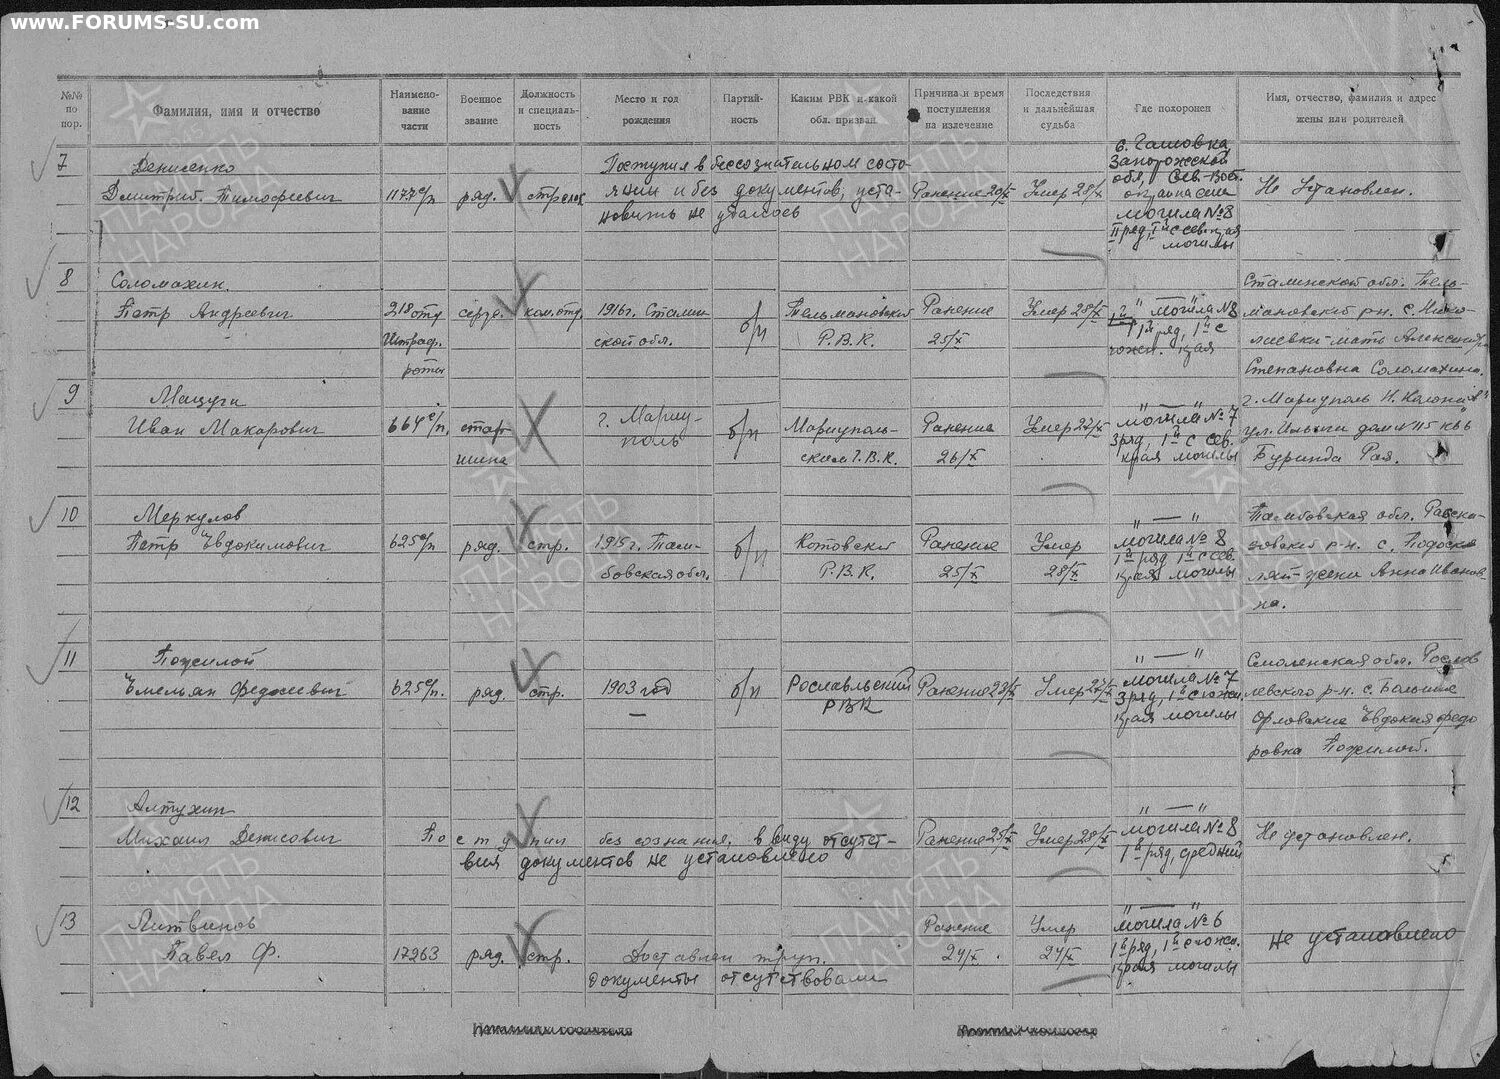 www.FORUMS-SU.com
№№ по пор.
Фамилия, имя и отчество
Наимено- вание части
Военное звание
Должность и специаль- ность
Место и год рождения
Партий- ность
Каким РВК и какой обл. призван
Причина и время поступления на излечение
Последствия и дальнейшая судьба
Где похоронен
Имя, отчество, фамилия и адрес жены или родителей
7
Денисенко
Дмитрий Тимофеевич
1177 с/п
ряд.
стрелок
Поступил в бессознательном состо-
янии и без документов, уста-
новить не удалось
Ранение 26/X
Умер 28/X
Запорожской
обл, Сев-Вост.
окраина села
могила №8
II ряд, I й с сев. края
могилы
Не установлен.
8
Соломахин.
Петр Андреевич
218 отд
штраф.
роты
серж.
ком. отд.
1916 г. Сталин
ской обл.
б/п
Тельмановский
Р.В.К.
Ранение
25/X
Умер 28/X
" — "
могила №8
1й ряд, 1й с
южн. края
Сталинской обл. Тель-
мановский рн. с. Нико-
лаевка - мать Александра
Степановна Соломахина.
9
Мацуги
Иван Макарович
664 с/п.
стар
шина
г. Мариу-
поль
б/п
Мариуполь-
ским Г.В.К.
Ранение
26/X
Умер 27/X
" — "
могила №7
3 ряд, 1й с сев.
края могилы
г. Мариуполь
ул. Ильича дом №115 кв 6
Буринда Рая.
10
Меркулов
Петр Евдокимович
625 с/п
ряд.
стр.
1915 г. Там-
бовская обл.
б/п
Котовский
Р.В.К.
Ранение
25/X
Умер
28/X
" — "
могила №8
1й ряд 1й с сев.
края могилы
Тамбовская обл. Расска-
зовский р-н. с.
жена Анна Иванов-
на.
11
Пожилой
Емельян Федосеевич
625 с/п.
ряд.
стр.
1903 год
—
б/п
Рославльский
РВК
Ранение 23/X
Умер 27/X
" — "
могила №7
3 ряд, 1й с южн.
края могилы
Смоленская обл. Рослав
левского р-н. с. Большие
Орловские Евдокия Федо
ровна Пожилой.
12
Алтухин
Михаил Денисович
Поступил без сознания, в виду отсутст-
вия документов не установлено
Ранение 25/X
Умер 28/X
" — "
могила №8
1й ряд, средний
Не установлен.
13
Литвинов
Павел Ф.
17263
ряд.
стр.
Доставлен труп.
документы отсутствовали
Ранение
24/X
Умер
24/X
" — "
могила №6
1й ряд, 1й с южн.
края могилы
Не установлено
ПАМЯТЬ
НАРОДА